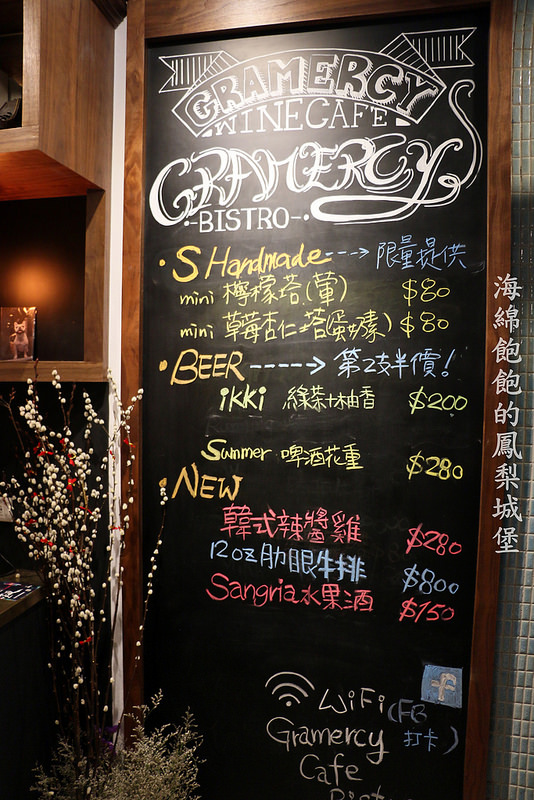 GRAMERCY
WINE CAFE
GRAMERCY
-BISTRO-
• S Handmade ---> 限量提供
mini 檸檬塔(葷) $80
mini 草莓杏仁塔(蛋奶素) $80
• BEER -----> 第2支半價!
ikki 綠茶+柚香 $200
Summer 啤酒花重 $280
• NEW
韓式辣醬雞 $280
12oz 肋眼牛排 $800
Sangria水果酒 $150
f
WiFi (FB
打卡)
Gramercy
Cafe
海綿飽飽的鳳梨城堡